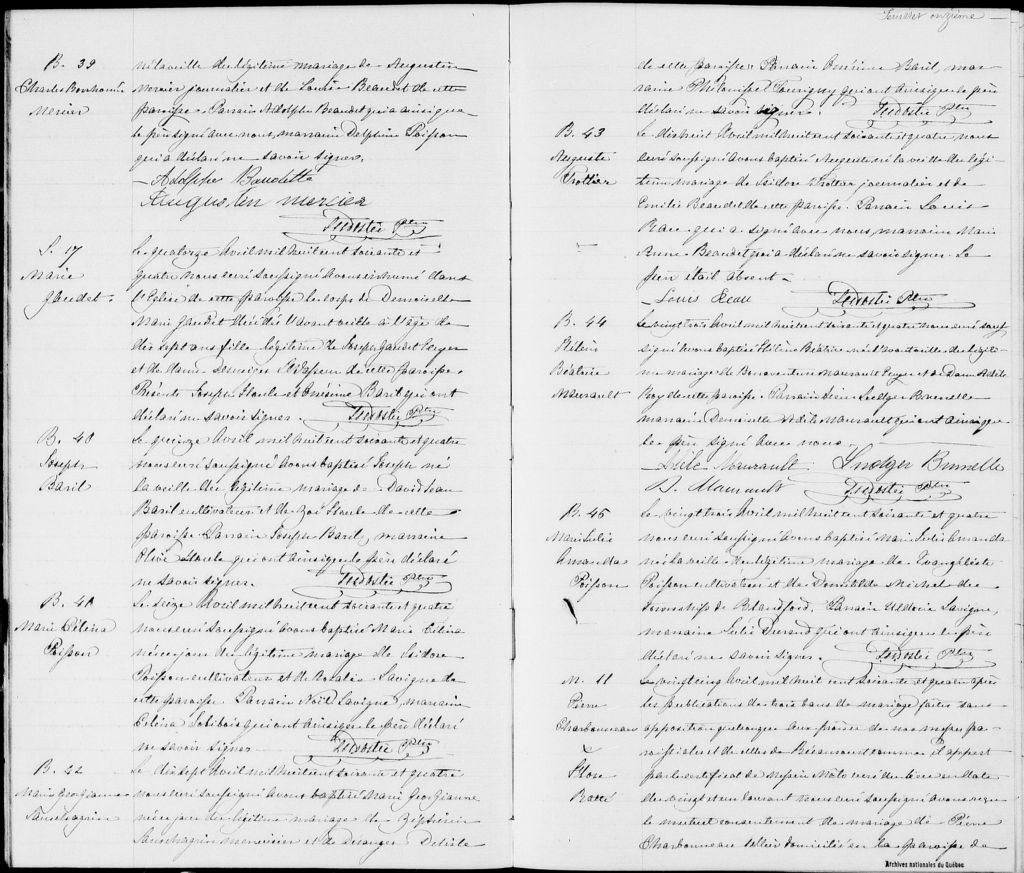 B. 39
Charles Bonhomme
Mercier
né la veille du légitime mariage de Augustin
Mercier journalier et de Louise Beaudet de cette
paroisse. Parrain Adolphe Beaudet qui a ainsi que
le père signé avec nous, marraine Delphine Poisson
qui a déclaré ne savoir signer.
Adolphe Baudette
Augustin mercier
Ptre
S. 17
Marie
Gaudet
Le quatorze Avril mil huit cent soixante et
quatre nous curé soussigné avons inhumé dans
l'Eglise de cette paroisse le corps de Demoiselle
Marie Gaudet décédée l'avant veille à l'age de
dix sept ans fille légitime de Joseph Gaudet Ecuyer
et de dame de cette paroisse.
Présents Joseph Houle et Onésime Baril qui ont
déclaré ne savoir signer. Ptre
B. 40
Joseph
Baril
Le quinze Avril mil huit cent soixante et quatre
nous curé soussigné avons baptisé Joseph né
la veille du légitime mariage de David Jean
Baril cultivateur et de Zoé Houle de cette
paroisse Parrain Joseph Baril, marraine
Olive Houle qui ont ainsi que le père déclaré
ne savoir signer. Ptre
B. 41
Marie Célina
Poisson
Le seize Avril mil huit cent soixante et quatre
nous curé soussigné avons baptisé Marie Célina
née ce jour du légitime mariage de Isidore
Poisson cultivateur et de Rosalie Lavigne de
cette paroisse. Parrain Noël Lavigne, marraine
Célina qui ont ainsi que le père déclaré
ne savoir signer. Ptre
B. 42
Marie Georgianne
Sanschagrin
Le dix sept Avril mil huit cent soixante et quatre
nous curé soussigné avons baptisé Marie Georgianne
née ce jour du légitime mariage de
Sanschagrin menuisier et de Desanges Delisle
Feuillet onzième
de cette paroisse. Parrain Onésime Baril, mar-
raine Philomène qui ont ainsi que le père
déclaré ne savoir signer. Ptre
B. 43
Auguste
Trottier
Le dix huit Avril mil huit cent soixante et quatre nous
curé soussigné avons baptisé Auguste né la veille du légi-
time mariage de Isidore Trottier journalier et de
Emilie Beaudet de cette paroisse. Parrain Louis
Beau qui a signé avec nous, marraine Marie
Anne Beaudet qui a déclaré ne savoir signer. Le
père était absent
Louis Beau Ptre
B. 44
Hélène
Béatrice
Maurault
Le vingt trois Avril mil huit cent soixante et quatre nous curé sous-
signé avons baptisé Hélène Béatrice née l'avant veille du légiti-
me mariage de Bonaventure Maurault Ecuyer et de Dame Adèle
Roy de cette paroisse. Parrain Sieur Ludger Brunelle
marraine Demoiselle Adèle Maurault qui ont ainsi que
le père signé avec nous.
Adèle Maurault Ludger Brunelle
B. Maurault Ptre
B. 45
Marie Julie
Amanda
Poisson
Le vingt trois Avril mil huit cent soixante et quatre
nous curé soussigné avons baptisé Marie Julie Amanda
née la veille du légitime mariage de Evangéliste
Poisson cultivateur et de Domitilde Michel du
township de Blandford. Parrain Lavigne,
marraine Julie Durand qui ont ainsi que le père
déclaré ne savoir signer. Ptre
M. 11
Pierre
Charbonneau
&
Flore
Ratté
Le vingt cinq Avril mil huit cent soixante et quatre après
les publications de trois bans de mariage faites sans
opposition quelconque aux prônes de nos messes pa-
roissiales et de celles de Bécancourt comme il appert
par le certificat de Messire Malo curé du lieu en date
du vingt et un courant nous curé soussigné avons reçu
le mutuel consentement de mariage de Pierre
Charbonneau sellier domicilié en la paroisse de
Archives nationales du Québec